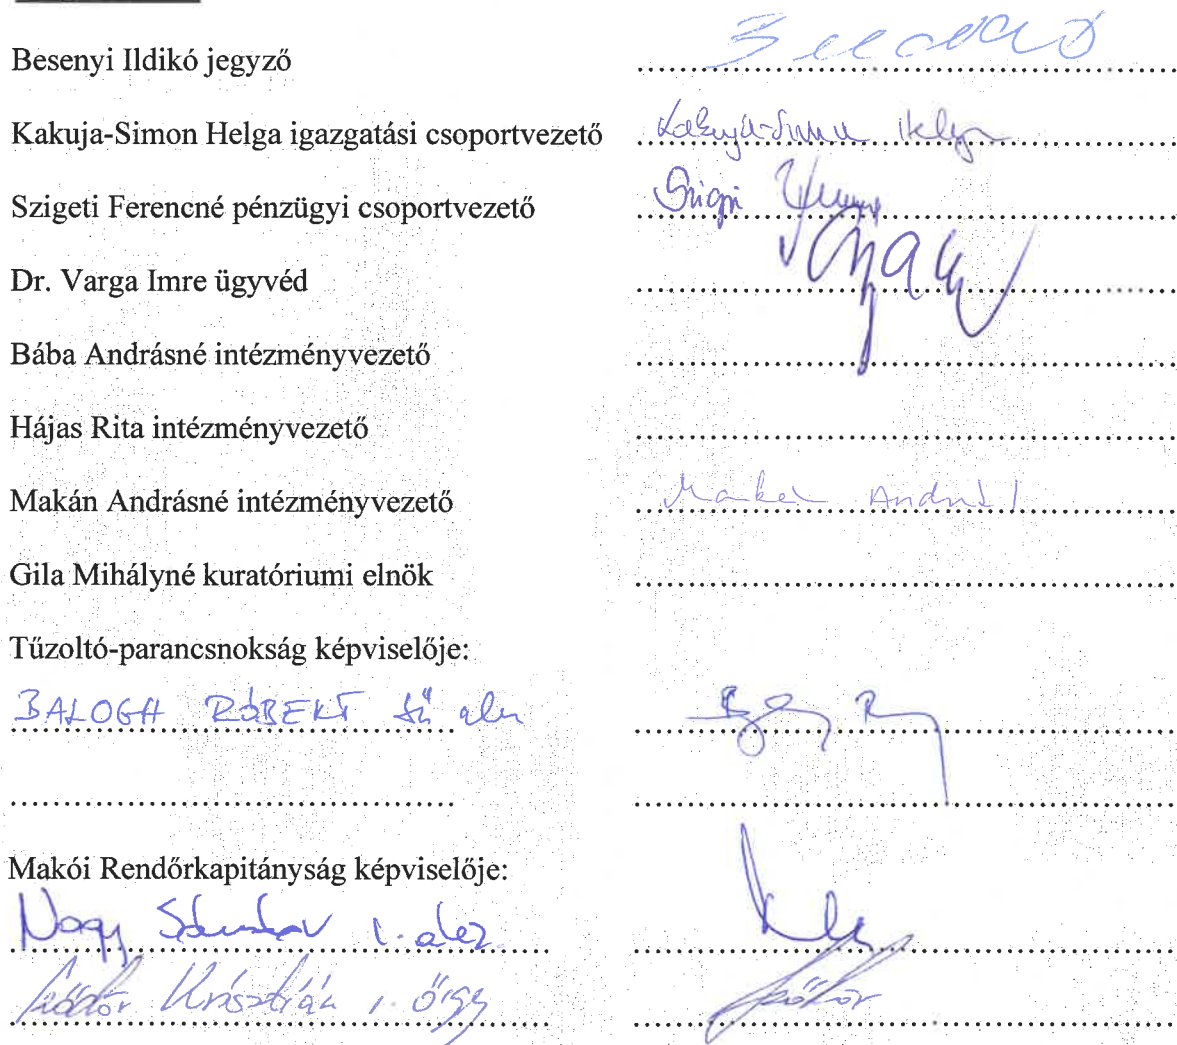 Besenyi Ildikó jegyző
Kakuja-Simon Helga igazgatási csoportvezető Kakuja-Simon Helga
Szigeti Ferencné pénzügyi csoportvezető
Dr. Varga Imre ügyvéd
Bába Andrásné intézményvezető
Hájas Rita intézményvezető
Makán Andrásné intézményvezető
Gila Mihályné kuratóriumi elnök
Tűzoltó-parancsnokság képviselője:
BALOGH RÓBERT tű alez
Makói Rendőrkapitányság képviselője:
Nagy r. alez.
Krisztián r. őrgy